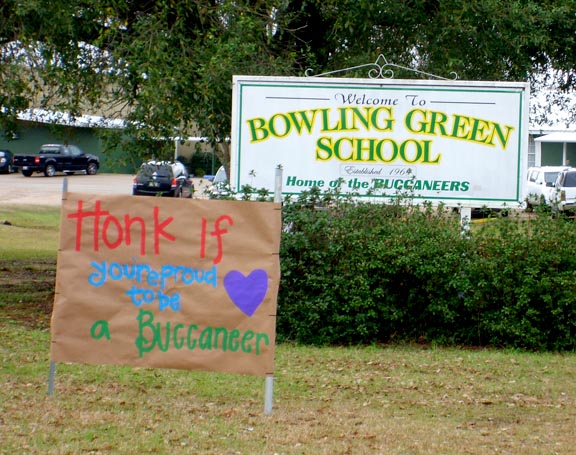 Welcome To
BOWLING GREEN
SCHOOL
Established
Home of the BUCCANEERS
Honk If
you're proud
to be
a Buccaneer